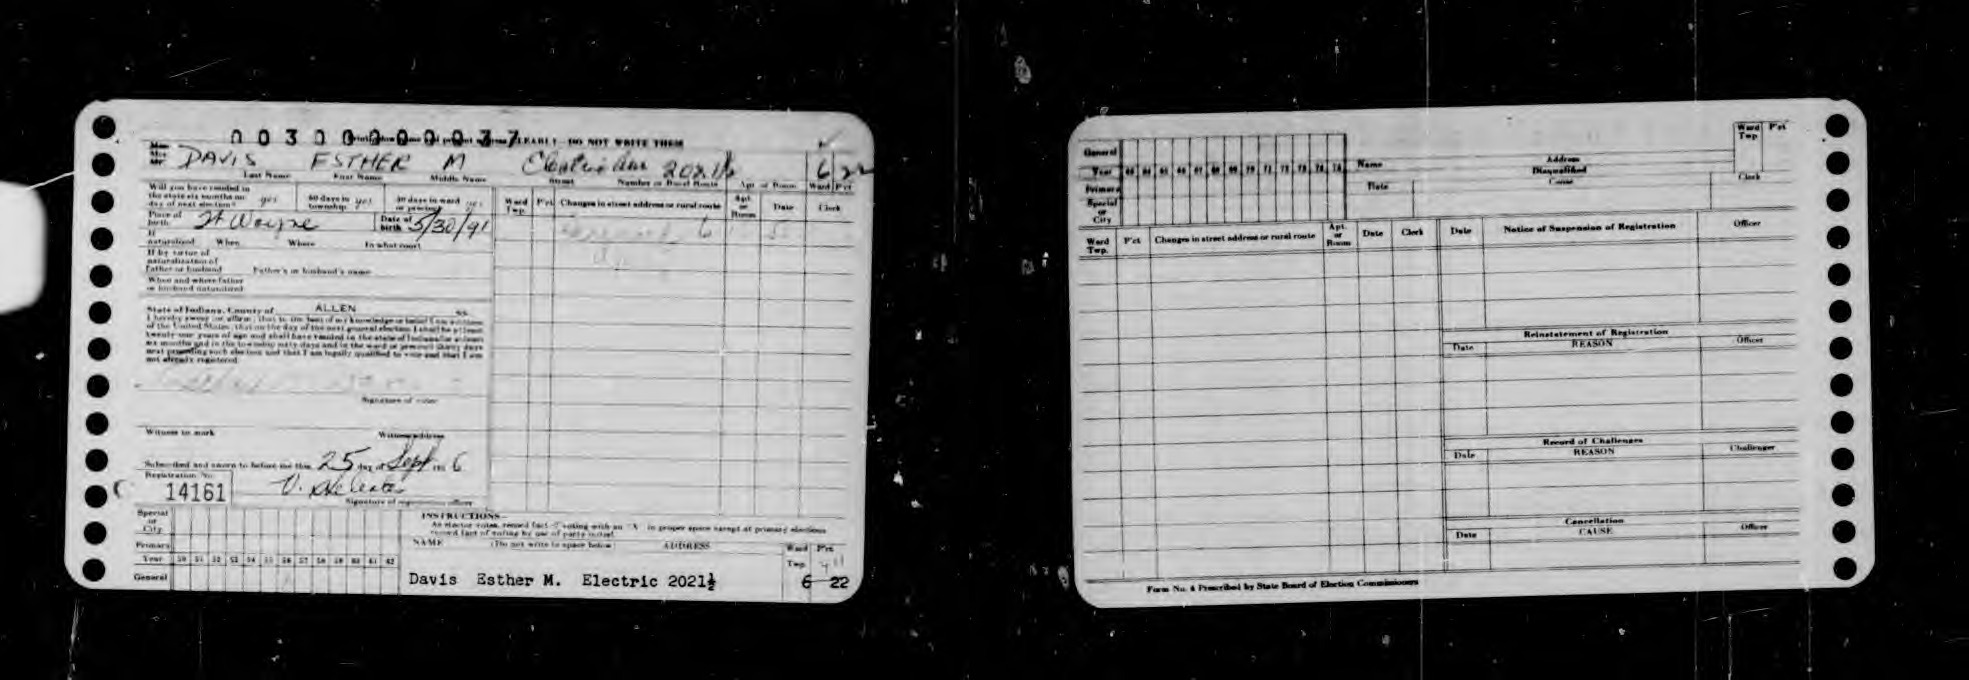 00300000077
CLEARLY - DO NOT WRITE THEM
DAVIS ESTHER M Electric Ave 2021½ 6 22
Last Name First Name Middle Name Street Number or Rural Route Apt. or Room Ward Pct
Will you have resided in the state six months on day of next election? yes 60 days in township yes 30 days in ward or precinct yes
Place of birth Ft Wayne Date of birth 5/30/91
If naturalized When Where In what court
If by virtue of naturalization of father or husband Father's or husband's name
When and where father or husband naturalized
State of Indiana, County of ALLEN ss.
I hereby swear (or affirm) that to the best of my knowledge or belief I am a citizen
of the United States, that on the day of the next general election I shall be at least
twenty-one years of age and shall have resided in the state of Indiana for at least
six months and in the township sixty days and in the ward or precinct thirty days
next preceding such election and that I am legally qualified to vote and that I am
not already registered.
Signature of voter
Witness to mark Witness address
Subscribed and sworn to before me this 25 day of Sept 6
Registration No.
14161
V.
Signature of registration officer
Ward Twp. Pct Changes in street address or rural route Apt. or Room Date Clerk
Special or City
Primary
Year 50 51 52 53 54 55 56 57 58 59 60 61 62
General
INSTRUCTIONS
As elector votes, record fact of voting with an "X" in proper space except at primary elections
record fact of voting by use of party initial
NAME (Do not write in space below) ADDRESS Ward Twp. Pct.
Davis Esther M. Electric 2021½ 6 22
General
Year 63 64 65 66 67 68 69 70 71 72 73 74 75
Primary
Special or City
Name Address
Disqualified
Date Cause Clerk
Ward Twp. Pct
Ward Twp. Pct Changes in street address or rural route Apt. or Room Date Clerk
Date Notice of Suspension of Registration Officer
Reinstatement of Registration
Date REASON Officer
Record of Challenges
Date REASON Challenger
Cancellation
Date CAUSE Officer
Form No. 4 Prescribed by State Board of Election Commissioners